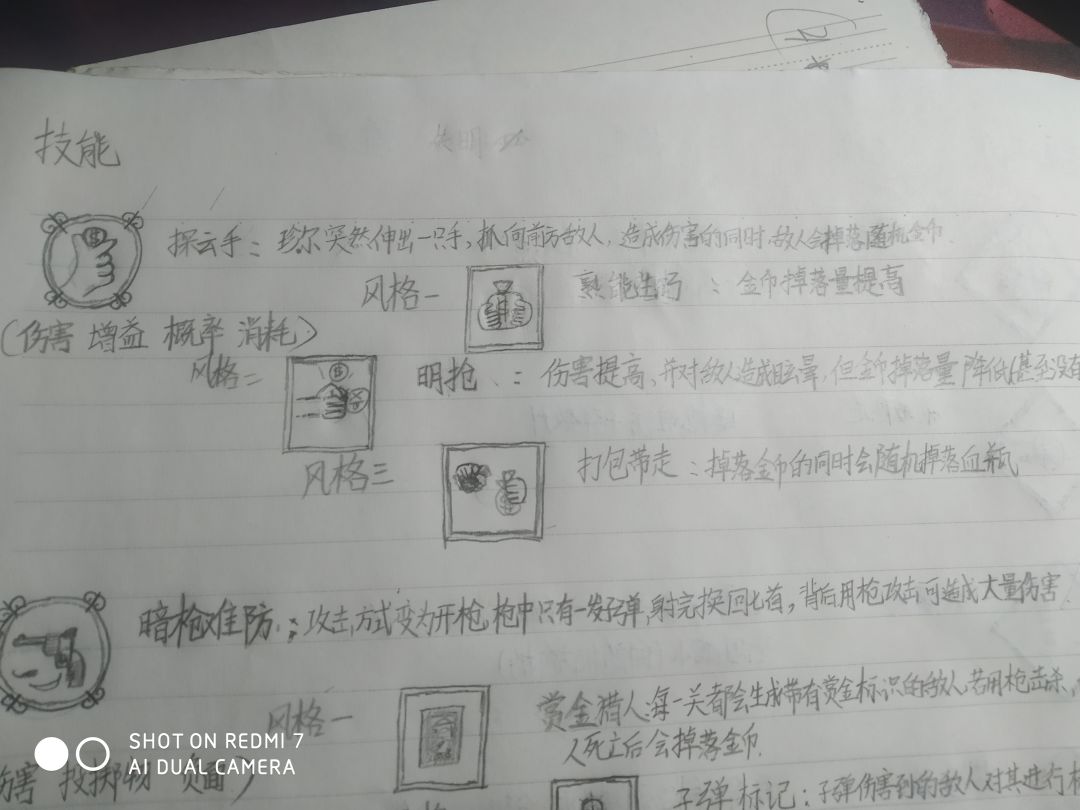 技能
探云手：珍尔突然伸出一只手，抓向前方敌人，造成伤害的同时，敌人会掉落随机金币.
风格一 熟能生巧：金币掉落量提高
(伤害 增益 概率 消耗)
风格二 明抢：伤害提高、并对敌人造成眩晕，但金币掉落量降低(甚至没有
风格三 打包带走：掉落金币的同时会随机掉落血瓶
暗枪难防：攻击方式变为开枪，枪中只有一发子弹，射完换回匕首，背后用枪攻击可造成大量伤害
风格一 赏金猎人：每一关都会生成带有赏金标识的敌人，若用枪击杀，
人死亡后会掉落金币.
伤害 投掷物 负面)
子弹标记：子弹伤害到的敌人对其进行标
SHOT ON REDMI 7
AI DUAL CAMERA